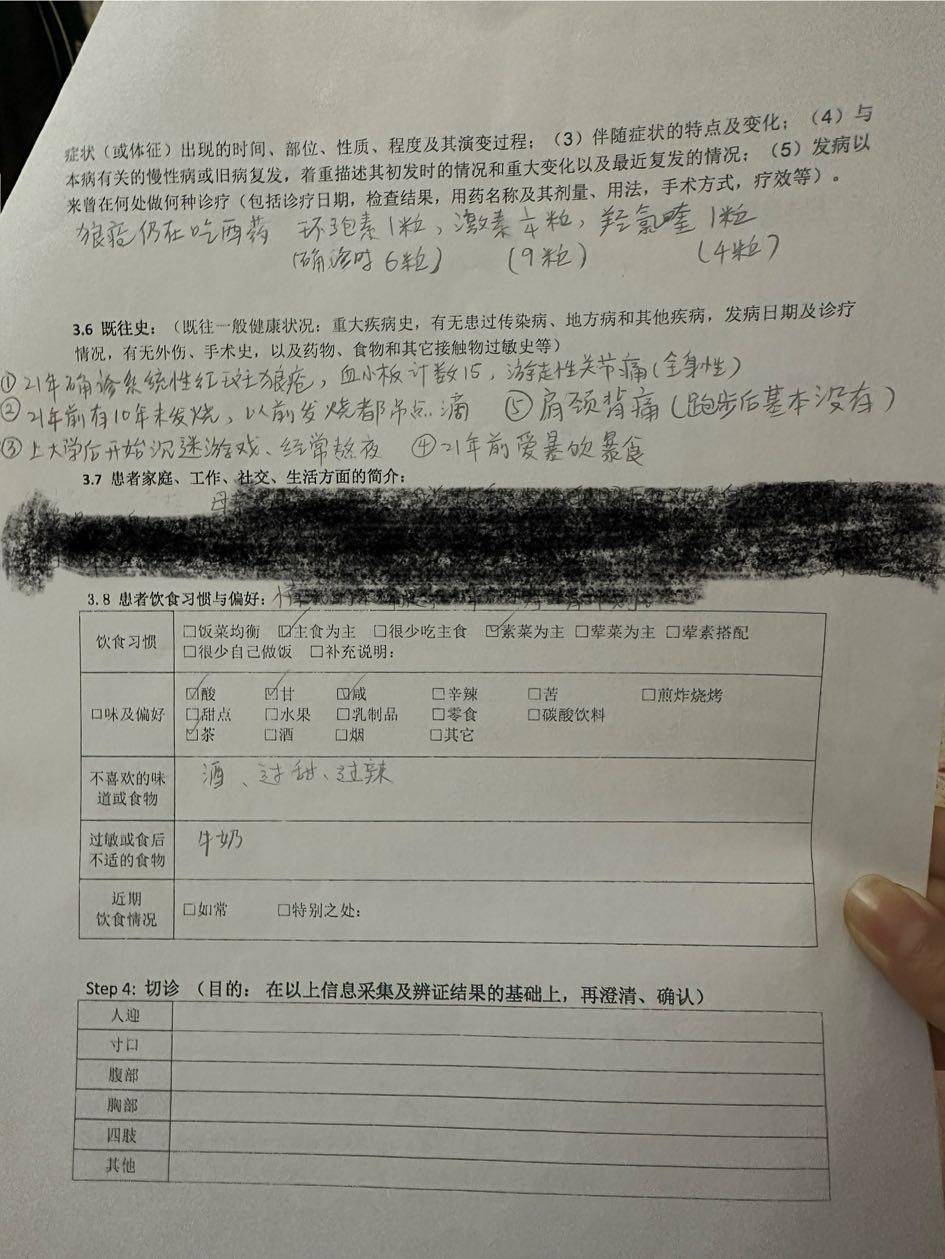 症状（或体征）出现的时间、部位、性质、程度及其演变过程；（3）伴随症状的特点及变化；（4）与
本病有关的慢性病或旧病复发，着重描述其初发时的情况和重大变化以及最近复发的情况；（5）发病以
来曾在何处做何种诊疗（包括诊疗日期，检查结果，用药名称及其剂量、用法，手术方式，疗效等）。
狼疮仍在吃西药 环孢素1粒，激素 粒，羟氯喹1粒
（确诊时6粒） （9粒） （4粒）
3.6 既往史：（既往一般健康状况：重大疾病史，有无患过传染病、地方病和其他疾病，发病日期及诊疗
情况，有无外伤、手术史，以及药物、食物和其它接触物过敏史等）
①21年确诊系统性红斑狼疮，血小板计数15，游走性关节痛（全身性）
②21年前有10年未发烧，以前发烧都吊点滴 ⑤肩颈背痛（跑步后基本没有）
③上大学后开始沉迷游戏、经常熬夜 ④21年前爱暴饮暴食
3.7 患者家庭、工作、社交、生活方面的简介：
母
3.8 患者饮食习惯与偏好：
饮食习惯 □饭菜均衡 ☑主食为主 □很少吃主食 ☑素菜为主 □荤菜为主 □荤素搭配
□很少自己做饭 □补充说明：
口味及偏好 ☑酸 ☑甘 ☑咸 □辛辣 □苦 □煎炸烧烤
□甜点 □水果 □乳制品 □零食 □碳酸饮料
☑茶 □酒 □烟 □其它
不喜欢的味道或食物 酒、过甜、过辣
过敏或食后不适的食物 牛奶
近期饮食情况 □如常 □特别之处：
Step 4: 切诊 （目的： 在以上信息采集及辨证结果的基础上，再澄清、确认）
人迎
寸口
腹部
胸部
四肢
其他